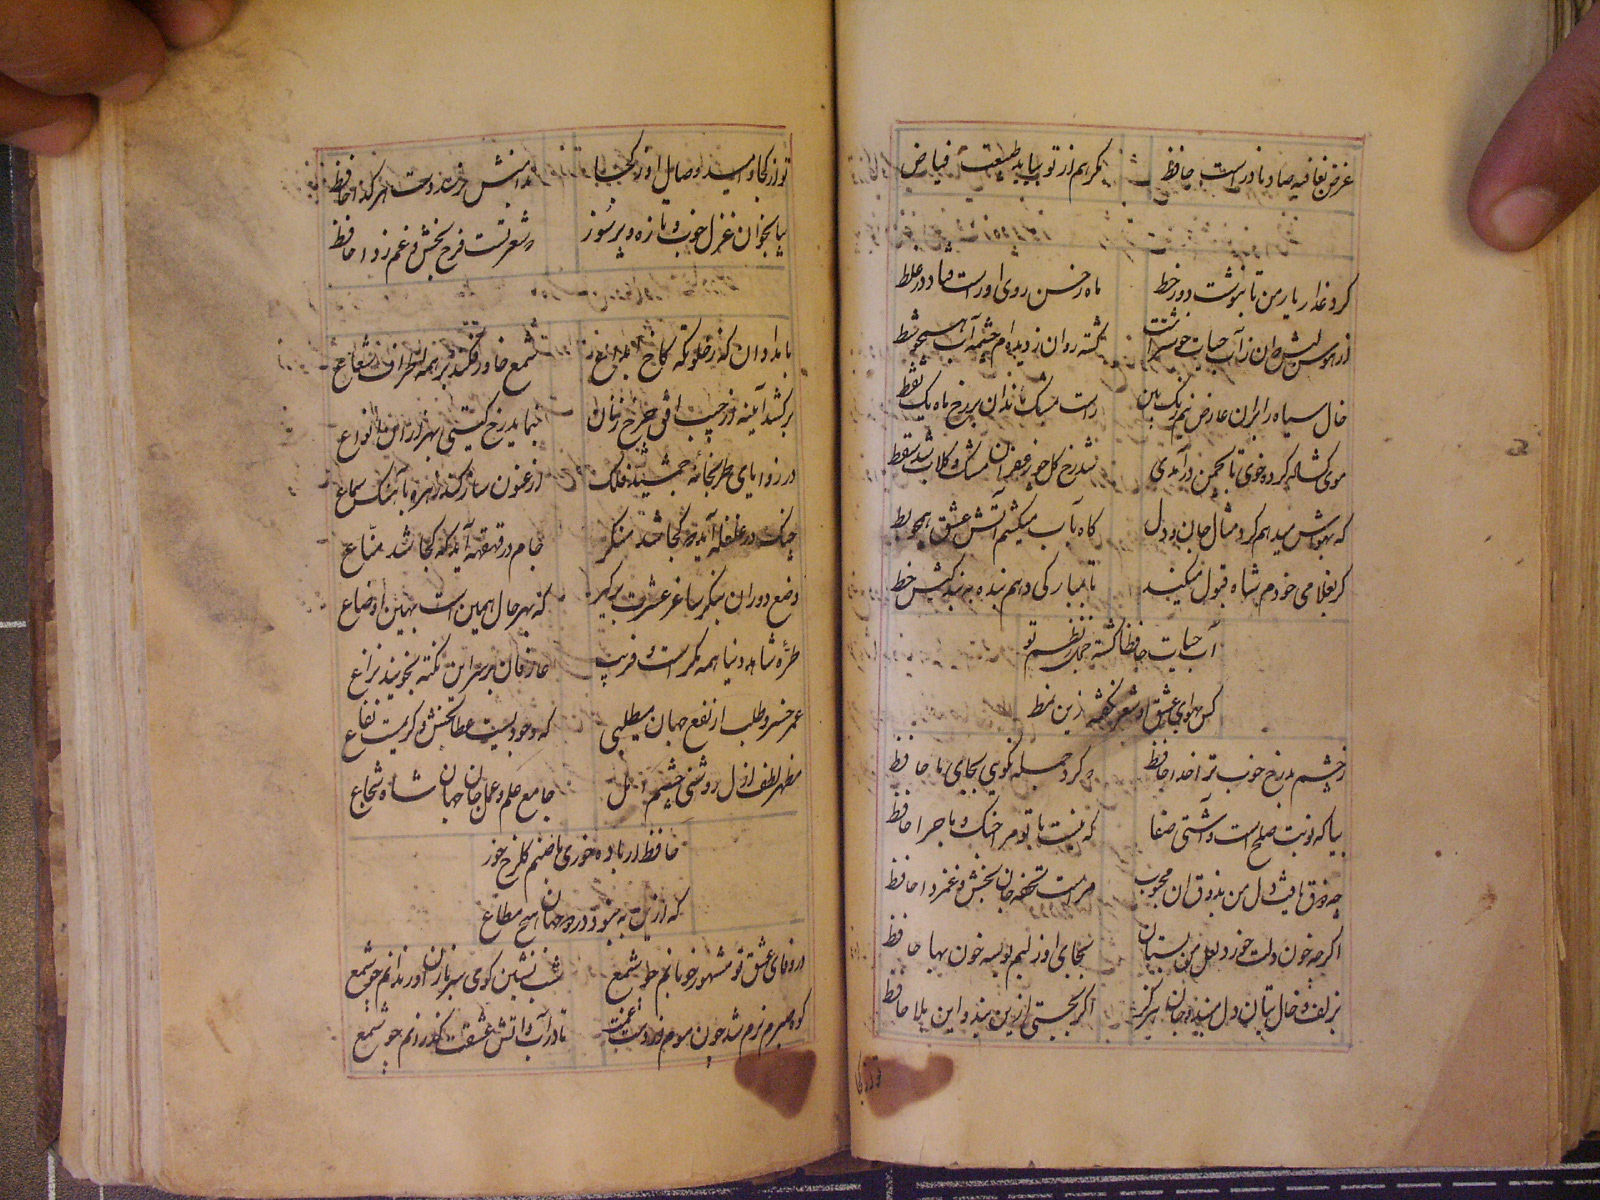 غرض نفاقیه صاد نادر است حافظ مکر هم از تو بیاید طبیعت فیاض
کرد عذار یار من تا بنوشت دور خط ماه ز حسن روی او راست فتاد در غلط
از هوس لبش که آن ز آب حیات خوشتر است کشته روان ز دیده ام چشمه آب همچو شط
خال سیاه را بران عارض سیم رنک بین راست ز مشک ماند آن بر رخ ماه یک نقط
موی کشاده کرده خوی تا بچمن درآمدی شد رخ کل چو زعفران مشک و کلاب شد سقط
که بهوش میدهم کرد مثال جان و دل کاه بآب میکشم آتش عشق همچو بط
کر بغلامی خودم شاه قبول میکند تا بمبارکی دهم بنده به بندکیش خط
آب حیات حافظا کشته خجل ز نظم تو
کس بهوای عشق او شعر نکفته زین نمط
ز چشم بد رخ خوب ترا خدا حافظ که کرد جمله نکویی بجای ما حافظ
بیا که نوبت صلح است و آشتی و صفا که نیست با تو مرا جنک و ماجرا حافظ
اکرچه خون دلت خورد لعل من بستان بجای او ز لبم بوسه خون بها حافظ
بزلف و خال بتان دل مبند و جان دیکر اکر بجستی ازین بند و این بلا حافظ
تو از کجا
تو از کجا و امید وصال او ز کجا بدامنش نرسد دست هر کدا حافظ
بیا بخوان غزل خوب و تازه و پر سوز که شعر تست فرح بخش و غم زدا حافظ
بامدادان که ز خلوتکه کاخ ابداع شمع خاور فکند بر همه اطراف شعاع
برکشد آینه از جیب افق چرخ زنان بنماید رخ کیتی بهزاران انواع
در زوایای طربخانه جمشید فلک ارغنون ساز کند زهره بآهنک سماع
چنک در غلغله آید که کجا شد منکر جام در قهقهه آید که کجا شد مناع
وضع دوران بنکر ساغر عشرت برکیر که بهر حال همین است بهین اوضاع
طره شاهد دنیا همه مکر است و فریب عارفان بر سر این نکته نجویند نزاع
عمر خسرو طلب ار نفع جهان میطلبی که وجودیست عطا بخش و کریمی نفاع
مظهر لطف ازل روشنی چشم امل جامع علم و عمل جان جهان شاه شجاع
حافظ ار باده خوری با صنم کلرخ خور
که ازین به نبود در دو جهان هیچ مطاع
در وفای عشق تو مشهور خوبانم چو شمع شب نشین کوی سربازان و رندانم چو شمع
کوه صبرم نرم شد چون موم در دست غمت تا در آب و آتش عشقت کدازانم چو شمع